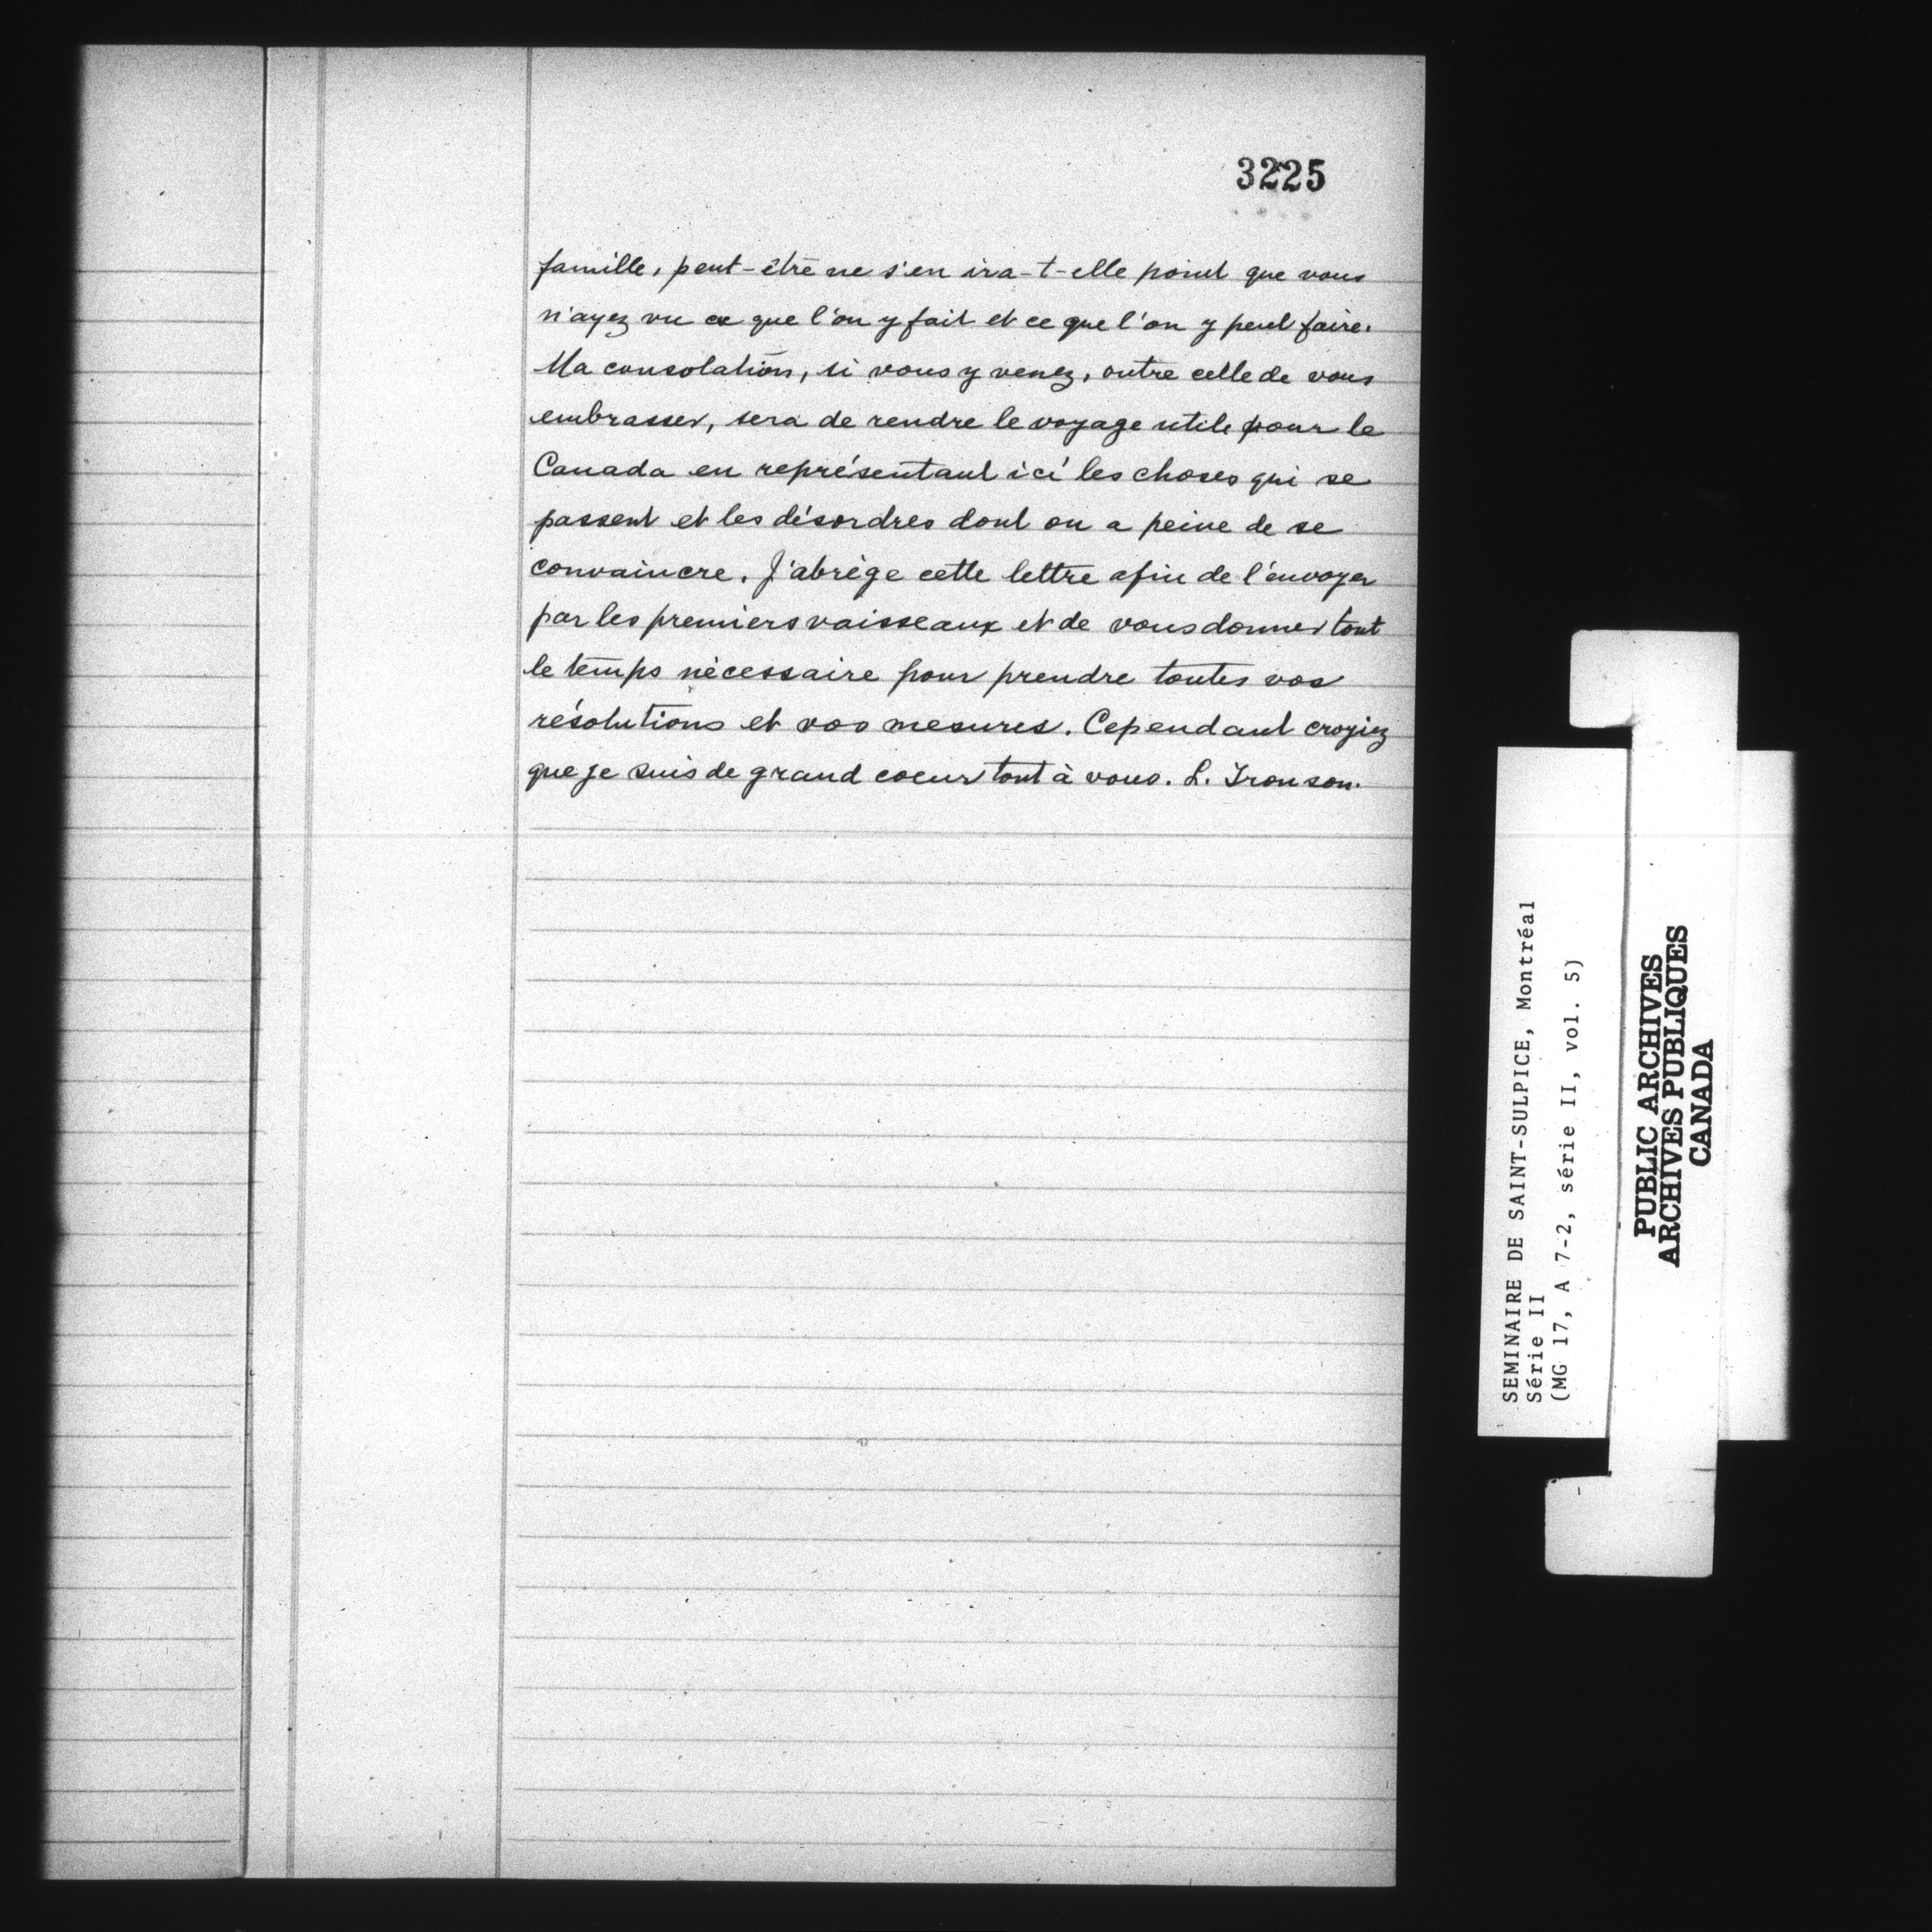 3225
famille, peut-être ne s'en ira-t-elle point que vous
n'ayez vu ce que l'on y fait et ce que l'on y peut faire.
Ma consolation, si vous y venez, outre celle de vous
embrasser, sera de rendre le voyage utile pour le
Canada en représentant ici les choses qui se
passent et les désordres dont on a peine de se
convaincre. J'abrège cette lettre afin de l'envoyer
par les premiers vaisseaux et de vous donner tout
le temps nécessaire pour prendre toutes vos
résolutions et vos mesures. Cependant croyiez
que je suis de grand coeur tout à vous. L. Tronson.
SEMINAIRE DE SAINT-SULPICE, Montréal
Série II
(MG 17, A 7-2, série II, vol. 5)
PUBLIC ARCHIVES
ARCHIVES PUBLIQUES
CANADA